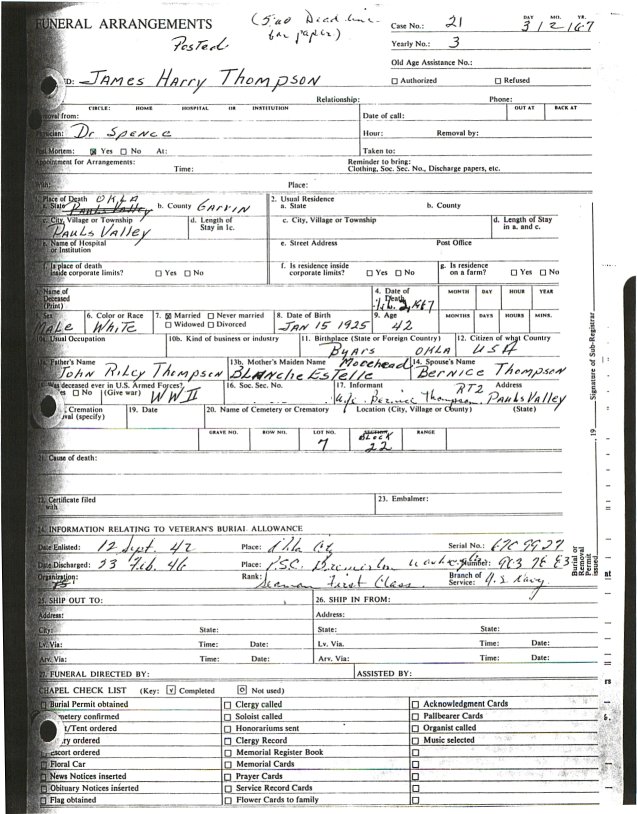 FUNERAL ARRANGEMENTS
(5:00 Dead line for paper)
Posted
Case No.: 21
DAY MO. YR.
3 1 2 1 67
Yearly No.: 3
Old Age Assistance No.:
☐ Authorized ☐ Refused
James Harry Thompson
Relationship: Phone:
CIRCLE: HOME HOSPITAL OR INSTITUTION OUT AT BACK AT
from: Date of call:
Dr Spence Hour: Removal by:
Mortem: ☒ Yes ☐ No At: Taken to:
Appointment for Arrangements: Time: Reminder to bring:
Clothing, Soc. Sec. No., Discharge papers, etc.
With: Place:
1. Place of Death OKLA 2. Usual Residence
a. State Pauls Valley b. County Garvin a. State b. County
c. City, Village or Township d. Length of Stay in 1c. c. City, Village or Township d. Length of Stay in a. and c.
Pauls Valley
e. Name of Hospital or Institution e. Street Address Post Office
f. Is place of death inside corporate limits? ☐ Yes ☐ No f. Is residence inside corporate limits? ☐ Yes ☐ No g. Is residence on a farm? ☐ Yes ☐ No
3. Name of Deceased (Print) 4. Date of Death Feb. 2, 1967 MONTH DAY HOUR YEAR
5. Sex 6. Color or Race 7. ☒ Married ☐ Never married 8. Date of Birth 9. Age MONTHS DAYS HOURS MINS.
☐ Widowed ☐ Divorced
Male White Jan 15 1925 42
Usual Occupation 10b. Kind of business or industry 11. Birthplace (State or Foreign Country) 12. Citizen of what Country
Byars OKLA USA
Father's Name 13b. Mother's Maiden Name Morehead 14. Spouse's Name
John Riley Thompson Blanche Estelle Bernice Thompson
Was deceased ever in U.S. Armed Forces? 16. Soc. Sec. No. 17. Informant RT2 Address
☐ No (Give war) WW II Bernice Thompson Pauls Valley
Cremation (specify) 19. Date 20. Name of Cemetery or Crematory Location (City, Village or County) (State)
GRAVE NO. ROW NO. LOT NO. SECTION Block RANGE
7 22
21. Cause of death:
22. Certificate filed with 23. Embalmer:
24. INFORMATION RELATING TO VETERAN'S BURIAL ALLOWANCE
Date Enlisted: 12 Sept. 42 Place: Okla City Serial No.: 670 99 27
Date Discharged: 23 Feb. 46 Place: P.S.C. Bremerton Washington Number:
Organization: Rank: Seaman First Class. Branch of Service: U.S. Navy.
25. SHIP OUT TO: 26. SHIP IN FROM:
Address: Address:
City: State: State: State:
Lv. Via: Time: Date: Lv. Via: Time: Date:
Arv. Via: Time: Date: Arv. Via: Time: Date:
27. FUNERAL DIRECTED BY: ASSISTED BY:
CHAPEL CHECK LIST (Key: ☑ Completed ☐ Not used)
☐ Burial Permit obtained ☐ Clergy called ☐ Acknowledgment Cards
Cemetery confirmed ☐ Soloist called ☐ Pallbearer Cards
/Tent ordered ☐ Honorariums sent ☐ Organist called
ordered ☐ Clergy Record ☐ Music selected
☐ Escort ordered ☐ Memorial Register Book ☐
☐ Floral Car ☐ Memorial Cards ☐
☐ News Notices inserted ☐ Prayer Cards ☐
☐ Obituary Notices inserted ☐ Service Record Cards ☐
☐ Flag obtained ☐ Flower Cards to family ☐
Signature of Sub-Registrar
19
Burial or Removal Permit issued